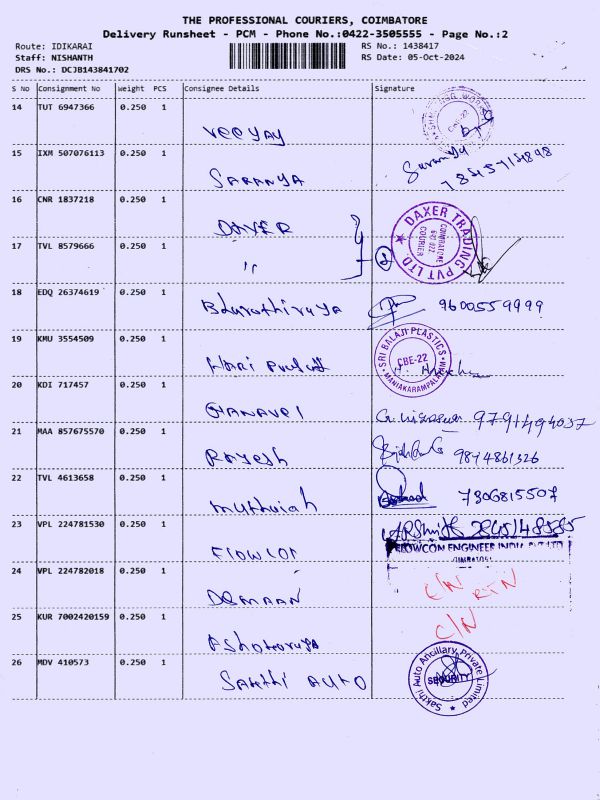 THE PROFESSIONAL COURIERS, COIMBATORE
Delivery Runsheet - PCM - Phone No.:0422-3505555 - Page No.:2
Route: IDIKARAI RS No.: 1438417
Staff: NISHANTH RS Date: 05-Oct-2024
DRS No.: DCJB143841702
S No Consignment No Weight PCS Consignee Details Signature
14 TUT 6947366 0.250 1
VEEYAY
15 IXM 507076113 0.250 1
SARANYA Saranya
16 CNR 1837218 0.250 1
DAXER
DAXER TRADING PVT LTD
COIMBATORE
COURIER
17 TVL 8579666 0.250 1
"
18 EDQ 26374619 0.250 1
Bharathiraja 9600559999
19 KMU 3554509 0.250 1
SRI BALAJI PLASTICS
CBE-22
MANIAKARAMPALAYAM
Hari
20 KDI 717457 0.250 1
GANAVEL 9791494037
21 MAA 857675570 0.250 1
Rajesh 9874861326
22 TVL 4613658 0.250 1
Muthuiah 7306815507
23 VPL 224781530 0.250 1
FLOWCON
FLOWCON ENGINEER INDIA PVT LTD
24 VPL 224782018 0.250 1
C/N RTN
25 KUR 7002420159 0.250 1
C/N
26 MDV 410573 0.250 1
SAKTHI AUTO
Sakthi Auto Ancillary Private Limited
SECURITY